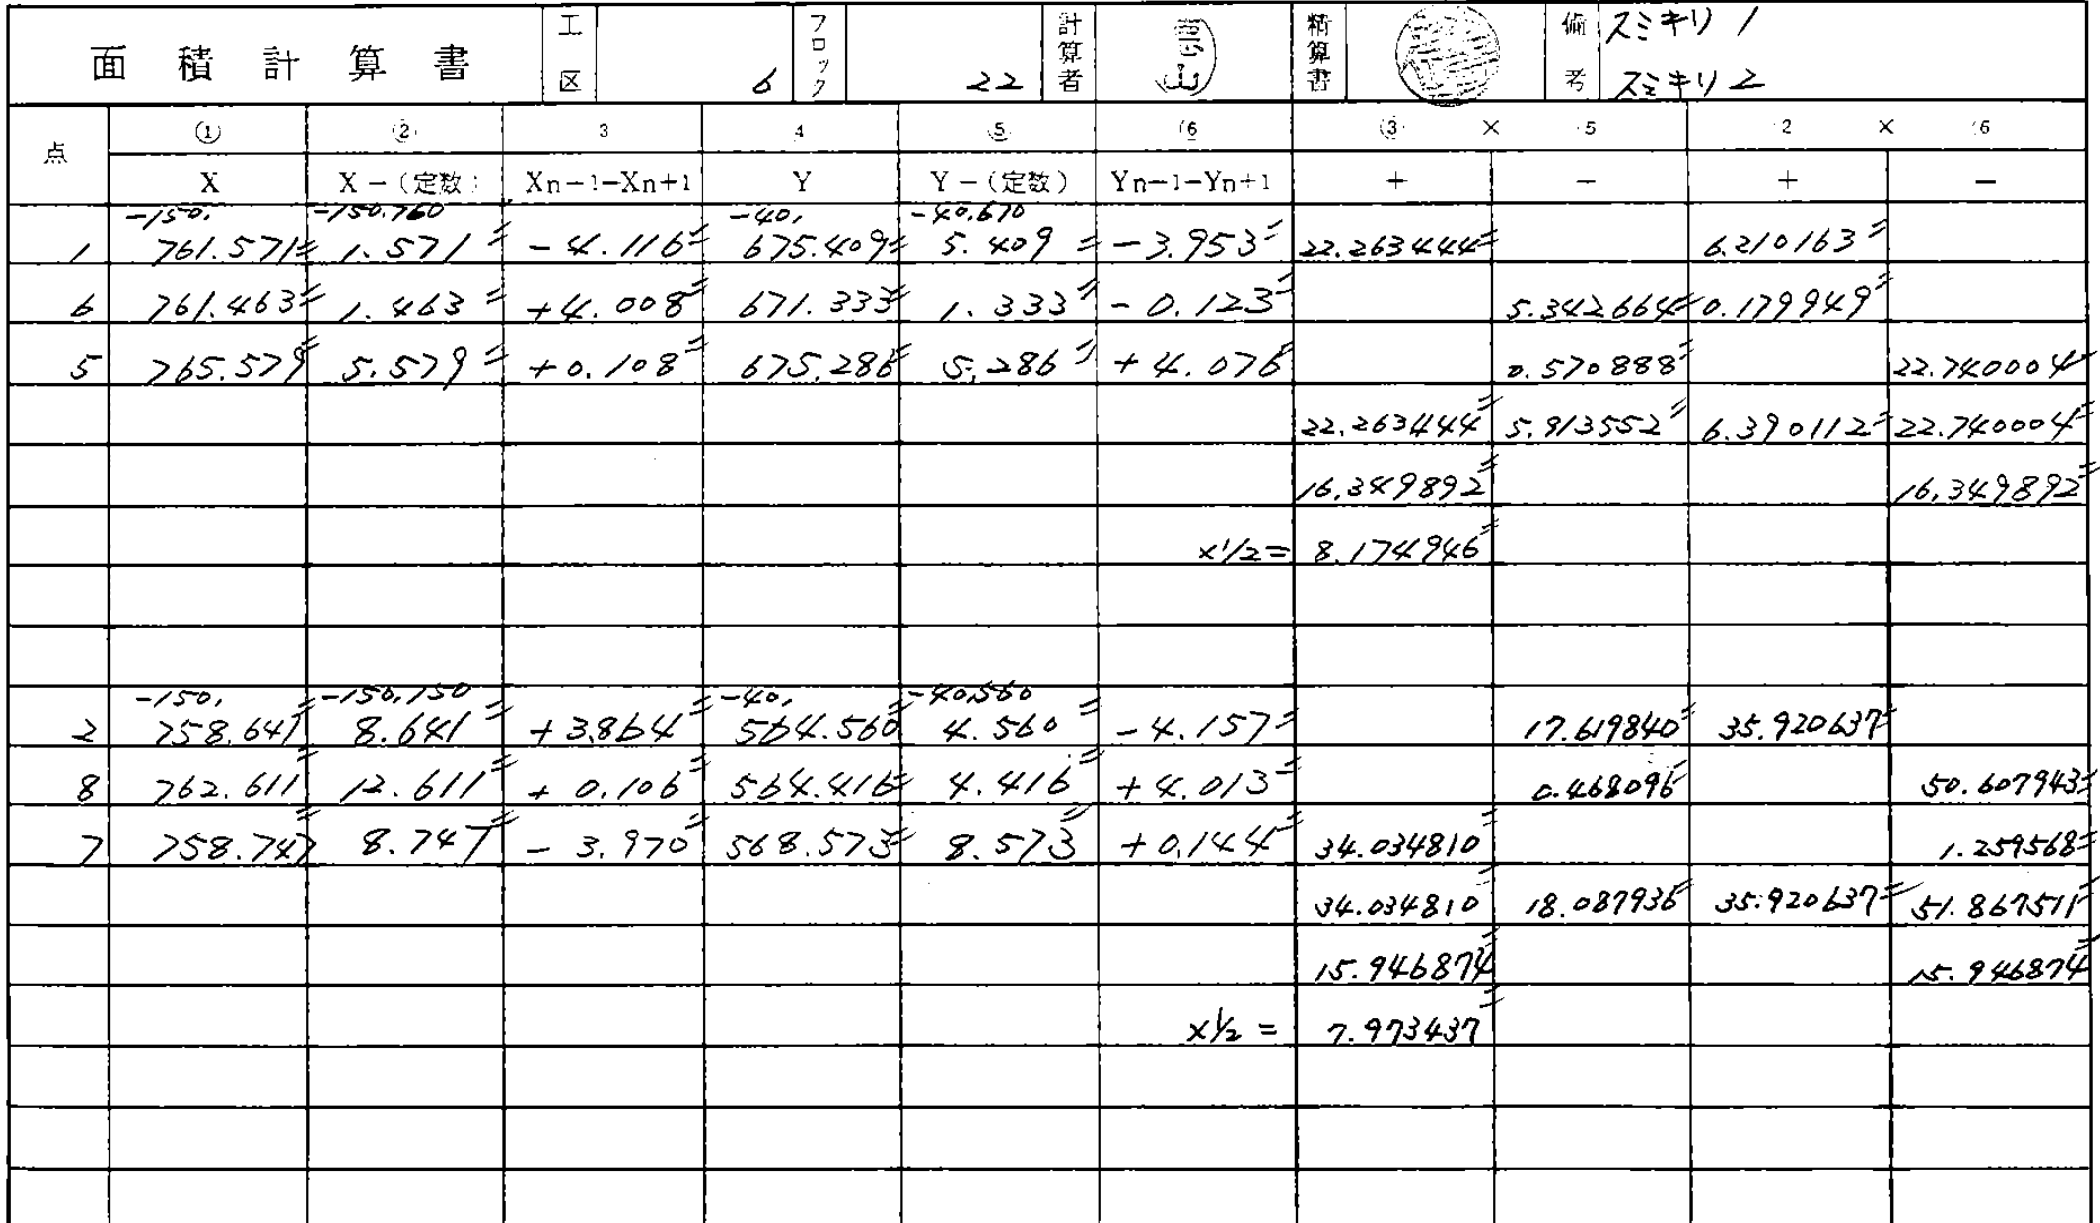 面積計算書 工区 6 ブロック 22 計算者 精算書 備考 スミキリ 1
スミキリ 2
点 ① ② 3 4 ⑤ ⑥ ③ × 5 2 × 6
X X-(定数) Xn-1-Xn+1 Y Y-(定数) Yn-1-Yn+1 + - + -
-150. -150.760 -40. -40.670
1 761.571 1.571 -4.116 675.409 5.409 -3.953 22.263444 6.210163
6 761.463 1.463 +4.008 671.333 1.333 -0.123 5.342664 0.179949
5 765.579 5.579 +0.108 675.286 5.286 +4.076 0.570888 22.740004
22.263444 5.913552 6.390112 22.740004
16.349892 16.349892
×1/2= 8.174946
-150. -150.150 -40. -40.560
2 758.641 8.641 +3.864 564.560 4.560 -4.157 17.619840 35.920637
8 762.611 12.611 +0.106 564.416 4.416 +4.013 0.468096 50.607943
7 758.747 8.747 -3.970 568.573 8.573 +0.144 34.034810 1.259568
34.034810 18.087936 35.920637 51.867511
15.946874 15.946874
×1/2= 7.973437